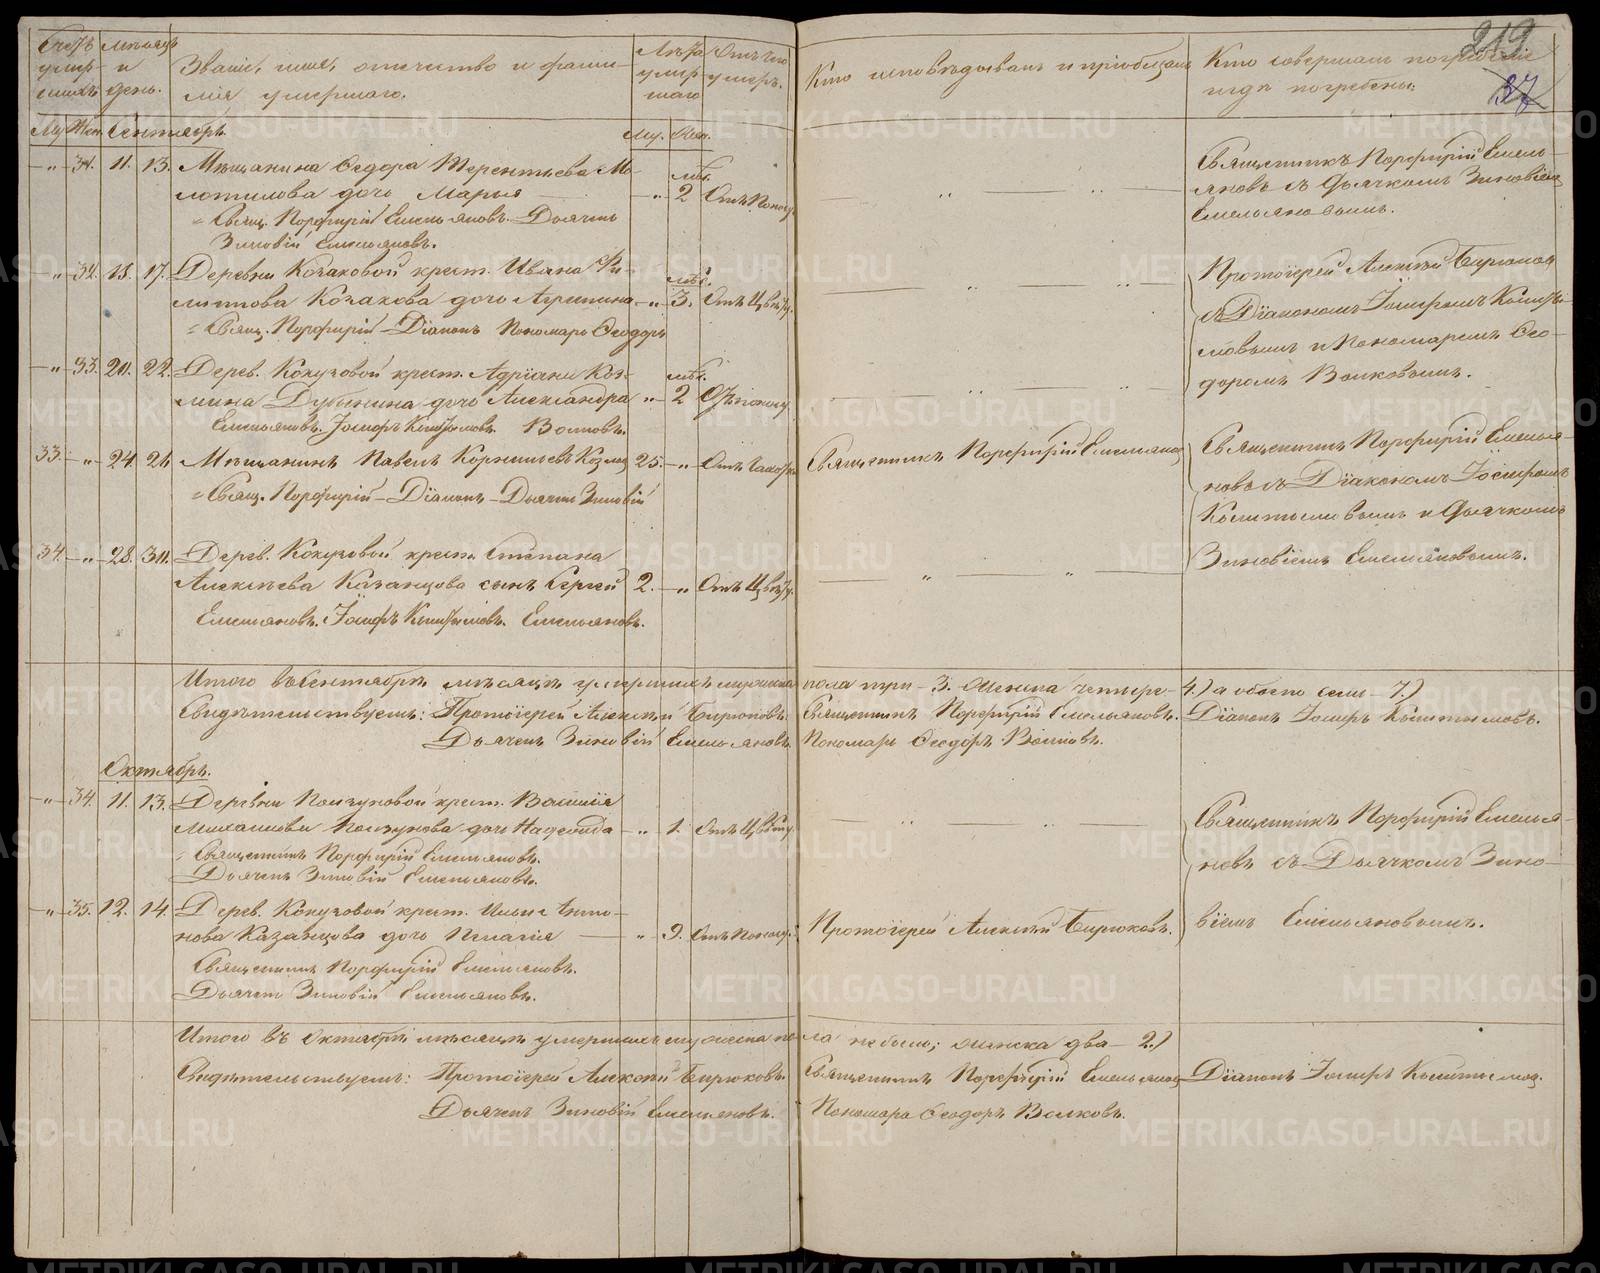 219
37
Счетъ умершихъ
Мѣсяцъ и день.
Званіе, имя, отечество и фами-
лія умершаго.
Лѣта умершаго
Отъ чего умеръ.
Кто исповѣдовалъ и пріобщалъ
Кто совершалъ погребеніе
и гдѣ погребены.
Му. Жен. Сентябрь. Му. Жен.
-„- 31. 11. 13. Мѣщанина Ѳедора Терентьева Мо-
лотилова дочь Марья -„- 2 Отъ поносу
Свящ. Порфирій Емельяновъ. Дьячекъ
Зиновій Емельяновъ.
Священникъ Порфирій Емель-
яновъ съ Дьячкомъ Зиновіемъ
Емельяновымъ.
-„- 32. 15. 17. Деревни Козаковой крест. Ивана Фи-
липпова Козакова дочь Агрипина -„- 3.
Свящ. Порфирій - Діаконъ Пономарь Ѳеодоръ
Протоіерей Алексѣй Бирюковъ
съ Діакономъ Іосифомъ Кышты-
мовымъ и Пономаремъ Ѳео-
доромъ Волковымъ.
-„- 33. 20. 22. Дерев. Кокузовой крест. Адріана Коз-
мина Дубынина дочь Александра -„- 2 Отъ поносу
Емельяновъ. Іосифъ Кыштымовъ. Волковъ.
33. -„- 24. 26 Мѣщанинъ Павелъ Корнильевъ 25. -„-
Священникъ Порфирій Емельяновъ
Свящ. Порфирій - Діаконъ - Дьячекъ Зиновій
Священникъ Порфирій Емелья-
новъ съ Діакономъ Іосифомъ
Кыштымовымъ и Дьячкомъ
Зиновіемъ Емельяновымъ.
34. -„- 28. 30. Дерев. Кокузовой крест. Степана
Алексѣева Казанцова сынъ Сергей 2. -„-
Емельяновъ. Іосифъ Кыштымовъ. Емельяновъ.
Итого въ Сентябрѣ мѣсяцѣ умершихъ мужеска пола три - 3. Женска четыре - 4.) а обоего семь - 7.)
Свидѣтельствуемъ: Протоіерей Алексѣй Бирюковъ. Священникъ Порфирій Емельяновъ. Діаконъ Іосифъ Кыштымовъ.
Дьячекъ Зиновій Емельяновъ. Пономарь Ѳеодоръ Волковъ.
Октябрь.
-„- 34. 11. 13. Деревни Ползуновой крест. Василія
Михаилова Ползунова дочь Надежда -„- 1.
Священникъ Порфирій Емельяновъ.
Дьячекъ Зиновій Емельяновъ.
Священникъ Порфирій Емелья-
новъ съ Дьячкомъ Зино-
віемъ Емельяновымъ.
-„- 35. 12. 14. Дерев. Кокузовой крест. Ильи Анто-
нова Казанцова дочь Пелагія -„- 9. Отъ поносу.
Протоіерей Алексѣй Бирюковъ.
Священникъ Порфирій Емельяновъ.
Дьячекъ Зиновій Емельяновъ.
Итого въ Октябрѣ мѣсяцѣ умершихъ мужеска пола не было; женска два - 2.)
Свидѣтельствуемъ: Протоіерей Алексѣй Бирюковъ. Священникъ Порфирій Емельяновъ Діаконъ Іосифъ Кыштымовъ.
Дьячекъ Зиновій Емельяновъ. Пономарь Ѳеодоръ Волковъ.
METRIKI.GASO-URAL.RU